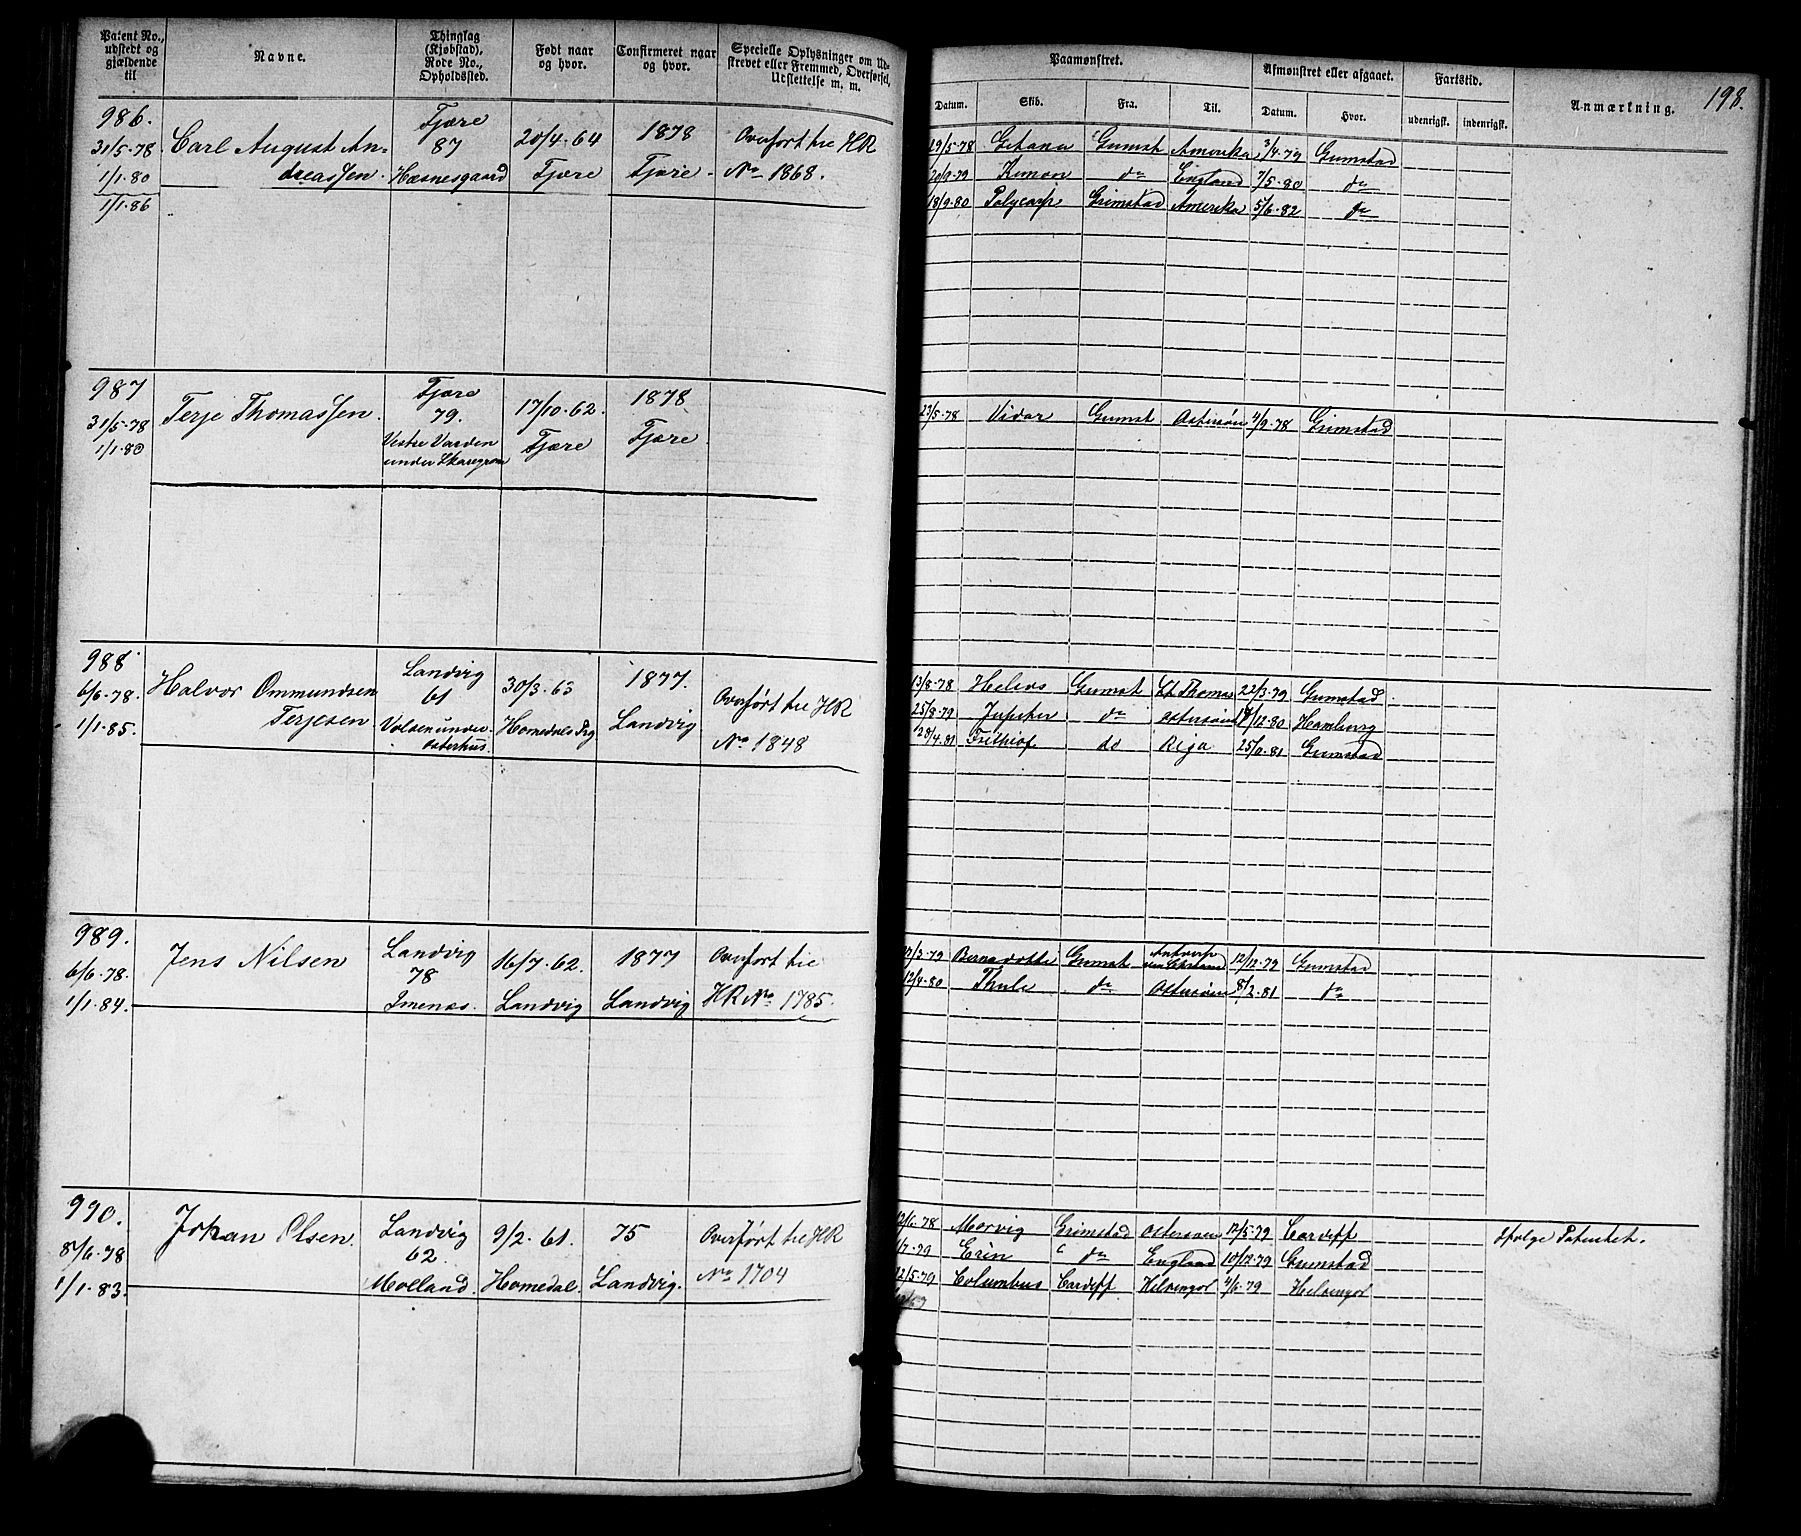 Patent No., udstedt og gjældende til
Navne.
Thinglag (Kjøbstad), Rode No., Opholdssted.
Født naar og hvor.
Confirmeret naar og hvor.
Specielle Oplysninger om Udskrevet eller Fremmed, Overførsel, Udslettelse m. m.
Paamønstret.
Afmønstret eller afgaaet.
Fartstid.
Anmærkning.
198.
Datum. Skib. Fra. Til. Datum. Hvor. udenrigsk. indenrigsk.
986.
31/5-78
1/1.80
1/1.86
Carl August An-
dreassen.
Fjære
87
Hæsnesgaard
20/4-64
Fjære
1878
Fjære
Overført til HR
No 1868.
29/5-78 Gitana Grimst Amerika 3/4-79 Grimstad
Kimon do England 7/5-80 do
18/9-80 Polycarp Grimstad Amerika 5/6-82 do
987
31/5-78
1/1.80
Terje Thomassen.
Fjære
79.
Vestre Varden
under
17/10-62.
Fjære
1878
Fjære
29/5-78 Vidar Grimst Østersøen 4/9-78 Grimstad
988
6/6-78.
1/1.85.
Halvor Ommundsen
Terjesen
Landvig
61
Østerhus.
30/3-63
Homedals
1877.
Landvig
Overført til HR
No 1848
13/8-78 Helios Grimst St Thomas 22/3-79 Grimstad
25/8-79 Jupiter do Østersøen Hamburg
28/4-81 Frithiof do Riga Grimstad
989.
6/6-78.
1/1-84.
Jens Nilsen
Landvig
78
Imenæs.
16/7-62.
Landvig
1877
Landvig
Overført til
HR No 1785.
Bernadotte Grimst Antwerp 12/12-79 Grimstad
12/4-80 Thule do Østersøen 8/2-81 do
990.
8/6-78
1/1-83.
Johan Olsen.
Landvig
62.
Molland.
9/2-61.
Homedal.
75
Landvig.
Overført til HR
No 1704
12/6-78 Mervig Grimstad Østersøen 12/5-79 Cardiff Ifølge Patentet.
Erin do England 10/12-79 Grimstad
22/5-79 Columbus Cardiff Helsingør 4/6-79 Helsingør